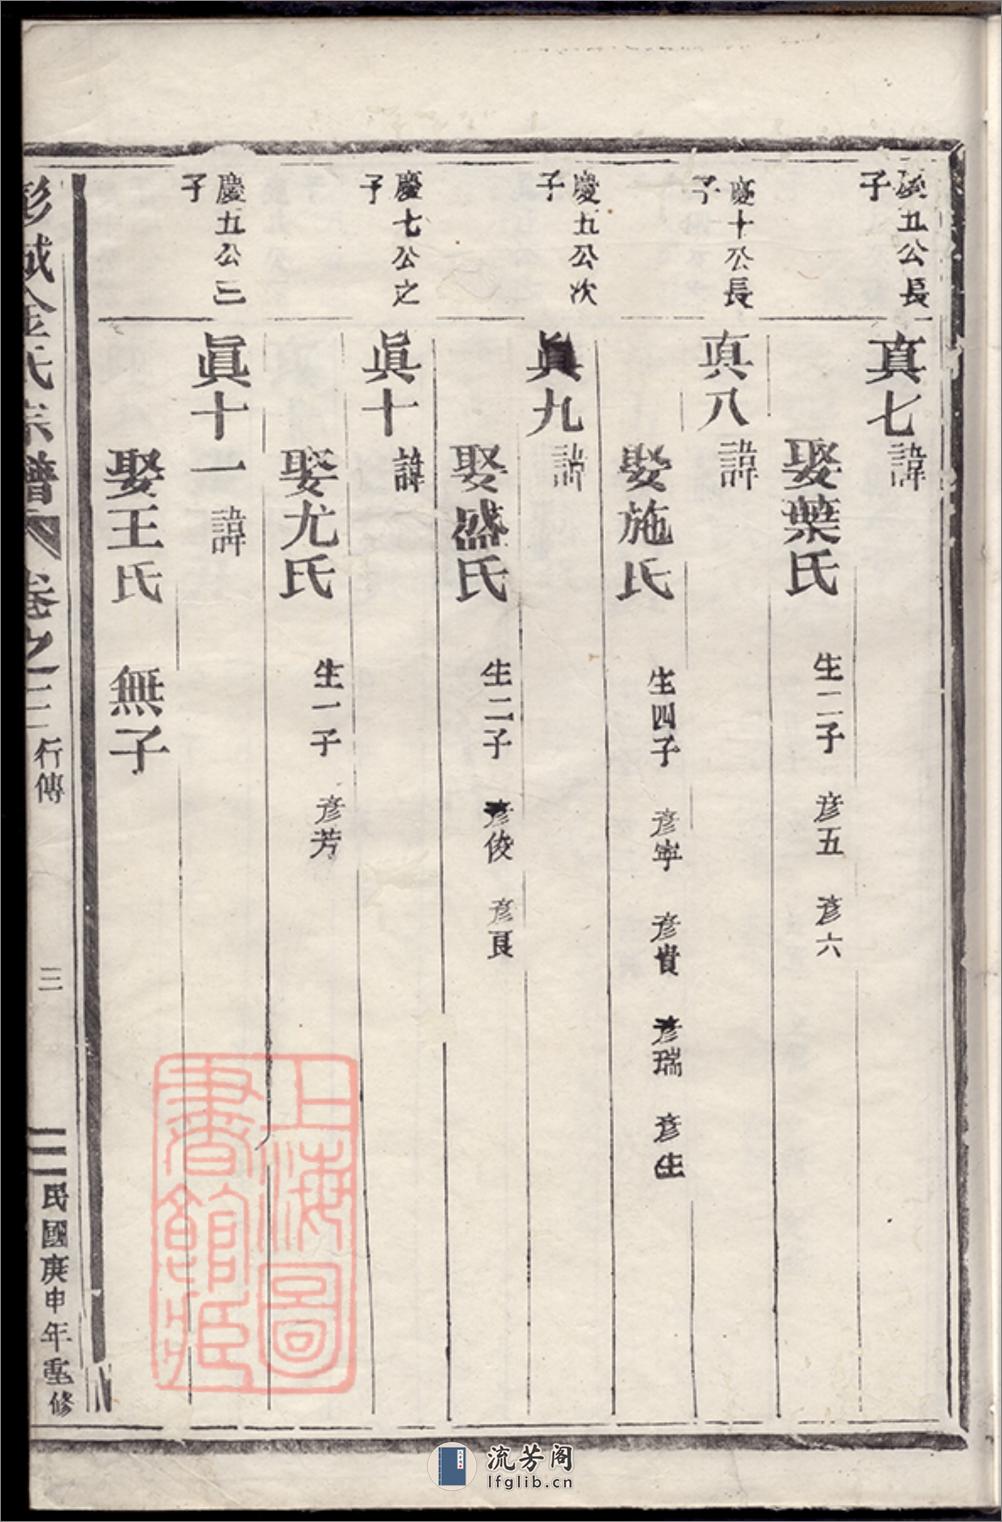 慶五公長
子
真七 諱
娶葉氏 生二子 彦五 彦六
慶十公長
子
真八 諱
娶施氏 生四子 彦寧 彦貴 彦瑞 彦生
慶五公次
子
眞九 諱
娶盛氏 生二子 彦俊 彦良
慶七公之
子
眞十 諱
娶尤氏 生一子 彦芳
慶五公三
子
眞十一 諱
娶王氏 無子
彭城金氏宗譜 卷之二 行傳 三 民國庚申年重修
上海圖
書館藏
流芳阁
lfglib.cn